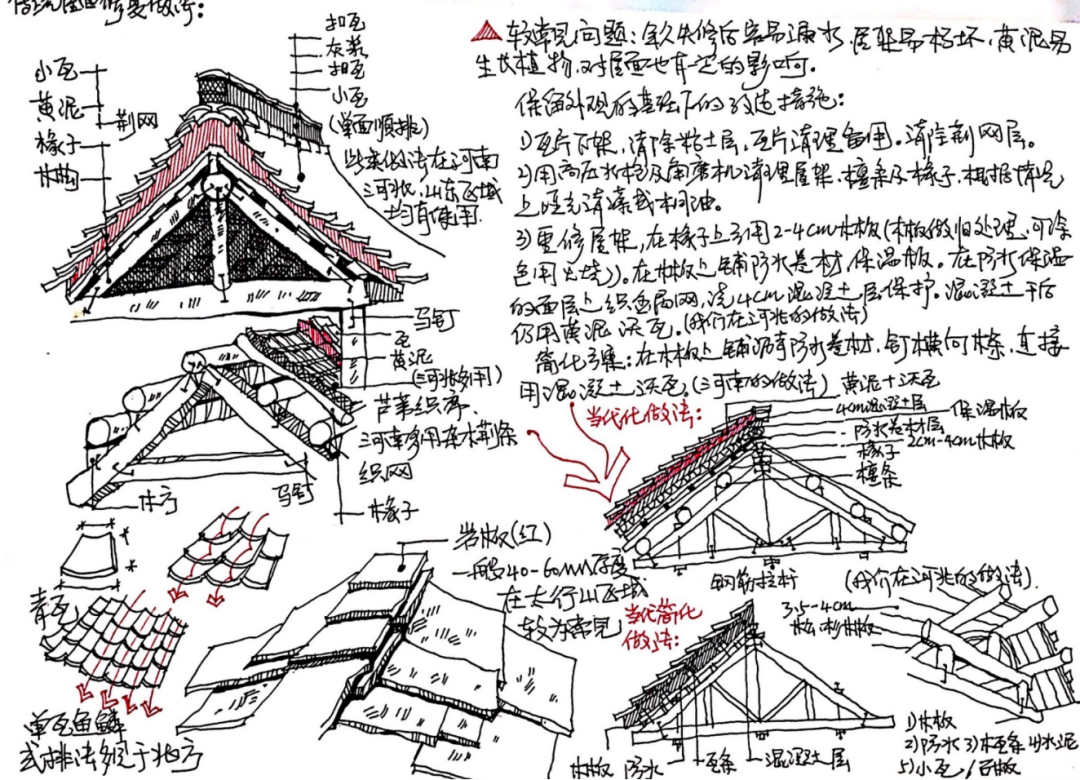 扣瓦
灰浆
扣瓦
小瓦
(单面顺排)
此类做法在河南
河北,山东区域
均有使用.
小瓦
黄泥
荆网
椽子
较常见问题:年久失修后容易漏水,屋架易朽坏,黄泥易
生长植物,对屋面也有一定的影响。
保留外观的基础下的改造措施:
1)瓦片下架,清除粘土层,瓦片清理备用。清除荆网层。
2)用高压水枪及角磨机清理屋架,檩条及椽子.根据情况
上哑光清漆或桐油。
3)重修屋架,在椽子上引用2-4cm木板(木板做旧处理,可染
色用火烧)。在木板上铺防水卷材,保温板。在防水保温
的面层上织钢网,浇4cm混凝土层保护。混凝土干后
仍用黄泥沃瓦。(我们在河北的做法)
简化方案:在木板上铺沥青防水卷材,钉横向木条,直接
用混凝土沃瓦。(河南的做法)
当代化做法:
黄泥+沃瓦
4cm混凝土层
保温板
防水卷材层
2cm-4cm木板
椽子
檩条
钢筋拉杆
(我们在河北的做法).
马钉
瓦
黄泥
(河北多用)
芦苇织席.
河南多用杂木荆条
织网
椽子
木方
马钉
青瓦
单瓦鱼鳞
式排法多见于北方
岩板(红)
一般40-60mm厚度
在太行山区域
较为常见
当代简化
做法:
3.5-4cm
松杉木板
木板
防水
瓦条
混凝土层
1)木板
2)防水 3)瓦条 4)水泥
5)小瓦/石板